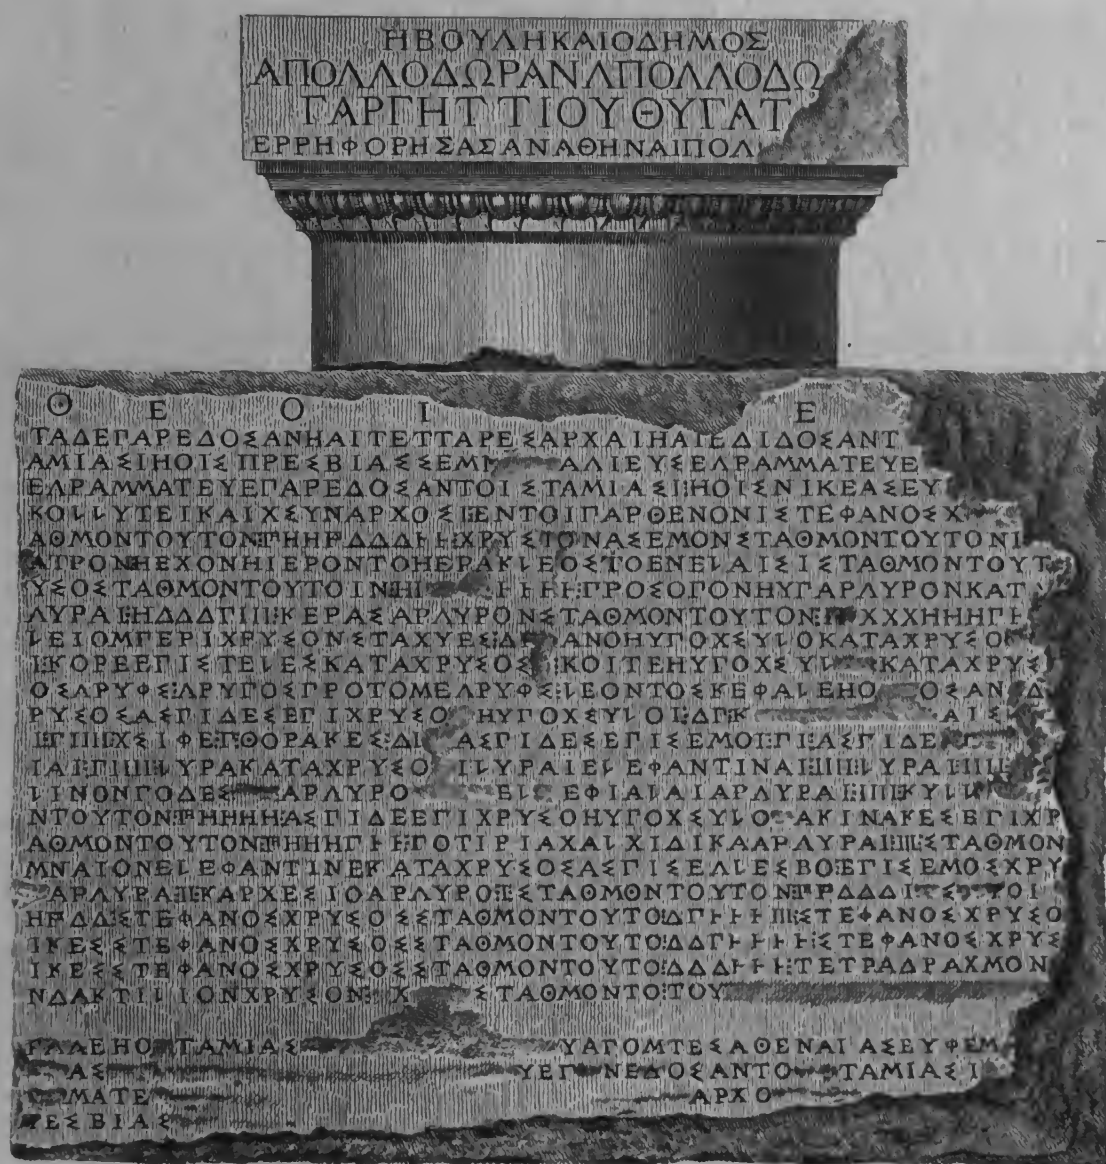 ΗΒΟΥΛΗΚΑΙΟΔΗΜΟΣ
ΑΠΟΛΛΟΔΩΡΑΝΛΠΟΛΛΟΔΩ
ΓΑΡΓΗΤΤΙΟΥΘΥΓΑΤ
ΕΡΡΗΦΟΡΗΣΑΣΑΝΑΘΗΝΑΙΠΟΛ
Θ Ε Ο Ι Ε
ΤΑΔΕΓΑΡΕΔΟΣΑΝΗΑΙΤΕΤΤΑΡΕΣΑΡΧΑΙΗΑΙΕΔΙΔΟΣΑΝΤ
ΑΜΙΑΣΙΗΟΙΣΠΡΕΣΒΙΑΣΣΕΜ ΑΛΙΕΥΣΕΛΡΑΜΜΑΤΕΥΕ
ΕΛΡΑΜΜΑΤΕΥΕΓΑΡΕΔΟΣΑΝΤΟΙΣΤΑΜΙΑΣΙ⁝ΗΟΙΣΝΙΚΕΑΣΕΥ
ΚΟͰͰΥΤΕΙΚΑΙΧΣΥΝΑΡΧΟΣΙ⁝ΕΝΤΟΙΓΑΡΘΕΝΟΝΙΣΤΕΦΑΝΟΣΧ
ΑΘΜΟΝΤΟΥΤΟΝ ΔΔΔͰͰ⁝ΧΡΥΣ ΟΝΑΣΕΜΟΝΣΤΑΘΜΟΝΤΟΥΤΟΝΙ
ΑΤΡΟΝΗΕΧΟΝΗΙΕΡΟΝΤΟΗΕΡΑΚLΕΟΣΤΟΕΝΕLΑΙΣΙΣΤΑΘΜΟΝΤΟΥΤ
ΥΣΟΣΤΑΘΜΟΝΤΟΥΤΟΙΝ ͰͰͰ⁝ΓΡΟΣΟΓΟΝΗΥΓΑΡΛΥΡΟΝΚΑΤ
ΛΥΡΑΙ⁝ΗΔΔΔΓΙΙΙ⁝ΚΕΡΑΣΑΡΛΥΡΟΝΣΤΑΘΜΟΝΤΟΥΤΟΝ ΧΧΧΗΗΗΓͰ
LΕΙΟΜΓΕΡΙΧΡΥΣΟΝΣΤΑΧΥΕΣ ΑΝΟΗΥΓΟΧΣΥLΟΚΑΤΑΧΡΥΣΟ
ΚΟΡΕΕΓΙΣΤΕLΕΣΚΑΤΑΧΡΥΣΟΣ ΚΟΙΤΕΗΥΓΟΧΣΥL ΚΑΤΑΧΡΥΣ
ΟΣΛΡΥΦΣ⁝ΛΡΥΓΟΣΓΡΟΤΟΜΕΛΡΥΦΣ⁝LΕΟΝΤΟΣΚΕΦΑLΕΗΟ ΟΣΑΝ Δ
ΡΥΣΟΣΑΣΓΙΔΕΣΕΓΙΧΡΥΣΟ ΗΥΓΟΧΣΥLΟΙ⁝ΔΓ⁝Κ ΑΙΣ
ΓΙΙΙΙ⁝ΧΣΙΦΕ⁝Γ⁝ΘΟΡΑΚΕΣ⁝ΔΙ ΑΣΓΙΔΕΣΕΓΙΣΕΜΟΙ⁝ΓΙ⁝ΑΣΓΙΔΕ
ΙΑΙ⁝ΓΙΙΙΙ⁝LΥΡΑΚΑΤΑΧΡΥΣΟ Ι⁝LΥΡΑΙΕLΕΦΑΝΤΙΝΑΙ⁝ΙΙΙΙ⁝LΥΡΑΙ⁝ΙΙΙΙ
LΙΝΟΝΓΟΔΕΣ ΑΡΛΥΡΟ ΦΙΑLΑΙΑΡΛΥΡΑΙ⁝ΙΙΙ⁝ΚΥLΙ
ΝΤΟΥΤΟΝ ΗΗΗΗ⁝ΑΣΓΙΔΕΕΓΙΧΡΥΣΟΗΥΓΟΧΣΥLΟ ΑΚΙΝΑΚΕΣΕΓΙΧΡ
ΑΘΜΟΝΤΟΥΤΟΝ ΗΗΗΓͰͰ⁝ΓΟΤΙΡΙΑΧΑLΧΙΔΙΚΑΑΡΛΥΡΑ⁝ΙΙΙΙ⁝ΣΤΑΘΜΟΝ
ΜΝΑΙΟΝΕLΕΦΑΝΤΙΝΕΚΑΤΑΧΡΥΣΟΣΑΣΓΙΣΕΛLΕΣΒΟ⁝ΕΓΙΣΕΜΟΣΧΡΥ
ΑΡΛΥΡΑ⁝ΙΙ⁝ΚΑΡΧΕΣΙΟΑΡΛΥΡΟ⁝ΙΙ⁝ΣΤΑΘΜΟΝΤΟΥΤΟΝ ΔΔΔ ΟΙ
ΔΔ⁝ΣΤΕΦΑΝΟΣΧΡΥΣΟΣΣΤΑΘΜΟΝΤΟΥΤΟ⁝ΔΓͰͰͰΙΙΙ⁝ΣΤΕΦΑΝΟΣΧΡΥΣΟ
ΙΚΕΣΣΤΕΦΑΝΟΣΧΡΥΣΟΣΣΤΑΘΜΟΝΤΟΥΤΟ⁝ΔΔΓͰͰͰͰ⁝ΣΤΕΦΑΝΟΣΧΡΥΣ
ΙΚΕΣΣΤΕΦΑΝΟΣΧΡΥΣΟΣΣΤΑΘΜΟΝΤΟΥΤΟ⁝ΔΔΔͰͰͰ⁝ΤΕΤΡΑΔΡΑΧΜΟΝ
ΝΔΑΚΤΙLΙΟΝΧΡΥΣΟΝ Χ ΣΤΑΘΜΟΝΤΟ ΤΟΥ
ΓΑΛΕΗΟ ΤΑΜΙΑΣ ΥΑΤΟΜΤΕΣΑΘΕΝΑΙΑΣΕΥΦΕΜ
ΑΣ ΥΕΓ ΝΕΔΟΣΑΝΤΟ ΤΑΜΙΑΣΙ
ΜΑΤΕ ΑΡΧΟ
ΡΕΣΒΙΑΣ